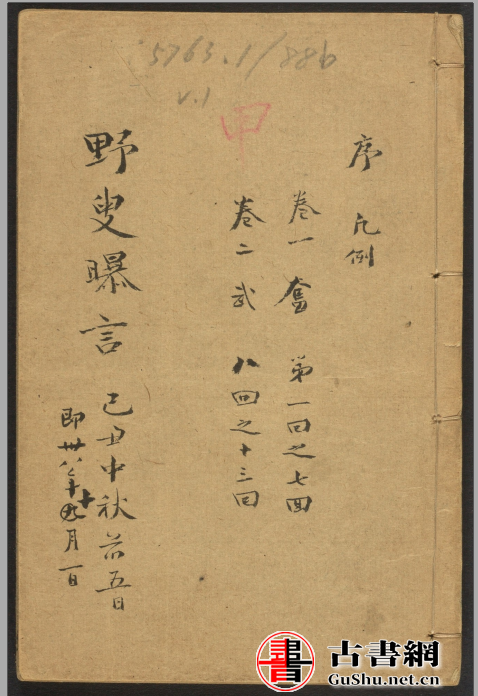 5763.1/886
v.1
甲
序 凡例
卷一 奮 第一回之七回
卷二 武 八回之十三回
野叟曝言 己丑中秋前五日
即卅八年十月一日
古書網
GuShu.net.cn